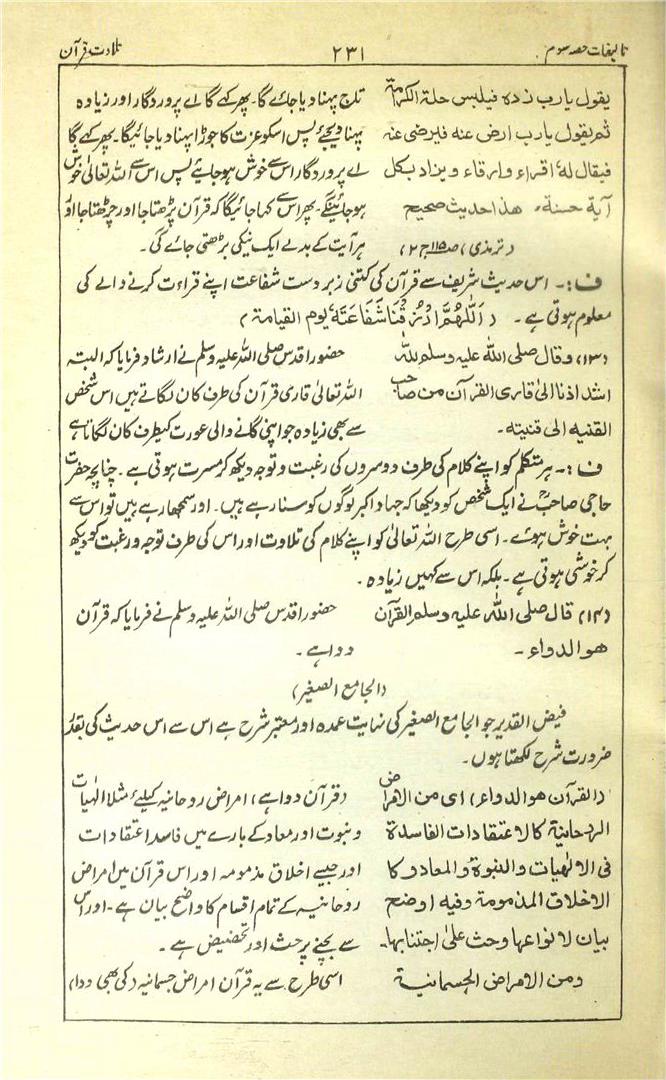 تالیفات حصہ سوم ۲۳۱ تلاوت قرآن
یقول یارب زدہ فیلبس حلة الکرامة تاج پہنا دیا جائے گا۔ پھر کہے گا اے پروردگار اور زیادہ
ثم یقول یارب ارض عنہ فیرضی عنہ پہنا دیجئے پس اسکو عزت کا جوڑا پہنا دیا جائیگا۔ پھر کہے گا
فیقال لہٗ اقراء وارقاء ویزاد بکل اے پروردگار اس سے خوش ہو جائیے پس اس سے اللہ تعالیٰ خوش
آیة حسنة۔ ھذا حدیث صحیح ہو جائینگے۔ پھر اس سے کہا جائیگا کہ قرآن پڑھتا جا اور چڑھتا جا اور
(ترمذی) (ص۱۱۵ ج۲) ہر آیت کے بدلے ایک نیکی بڑھتی جائے گی۔
ف :۔ اس حدیث شریف سے قرآن کی کتنی زبردست شفاعت اپنے قراءت کرنے والے کی
معلوم ہوتی ہے۔ (اَللّٰهُمَّ ارْزُقْنَا شَفَاعَتَهٗ یوم القیامة)
(۱۳) وقال صلی اللّٰہ علیہ وسلم للّٰہ حضور اقدس صلی اللہ علیہ وسلم نے ارشاد فرمایا کہ البتہ
اشد اذنا الیٰ قاری القرآن من صاحب اللہ تعالیٰ قاری قرآن کی طرف کان لگاتے ہیں اس شخص
القنیہ الی قنیتہ۔ سے بھی زیادہ جو اپنی گانے والی عورت کیطرف کان لگاتا ہے
ف :۔ ہر متکلم کو اپنے کلام کی طرف دوسروں کی رغبت و توجہ دیکھ کر مسرت ہوتی ہے۔ چنانچہ حضرت
حاجی صاحبؒ نے ایک شخص کو دیکھا کہ جہاد اکبر لوگوں کو سنا رہے ہیں۔ اور سمجھا رہے ہیں تو اس سے
بہت خوش ہوئے۔ اسی طرح اللہ تعالیٰ کو اپنے کلام کی تلاوت اور اس کی طرف توجہ و رغبت کو دیکھ
کر خوشی ہوتی ہے۔ بلکہ اس سے کہیں زیادہ۔
(۱۴) قال صلی اللّٰہ علیہ وسلم القرآن حضور اقدس صلی اللہ علیہ وسلم نے فرمایا کہ قرآن
ھو الدواء۔ دوا ہے۔
(الجامع الصغیر)
فیض القدیر جو الجامع الصغیر کی نہایت عمدہ اور معتبر شرح ہے اس سے اس حدیث کی بقدر
ضرورت شرح لکھتا ہوں۔
(القرآن ھو الدواء) ای من الامراض (قرآن دوا ہے) امراض روحانیہ کیلئے مثلاً الٰہیات
الروحانیة کالاعتقادات الفاسدة و نبوت اور معاد کے بارے میں فاسد اعتقادات
فی الالٰھیات والنبوة والمعاد وکا اور جیسے اخلاق مذمومہ اور اس قرآن میں امراض
الاخلاق المذمومة وفیہ اوضح روحانیہ کے تمام اقسام کا واضح بیان ہے۔ اور اس
بیان لانواعھا وحث علیٰ اجتنابھا۔ سے بچنے پر حث اور تحضیض ہے۔
ومن الامراض الجسمانیة اسی طرح سے یہ قرآن امراض جسمانیہ (کی بھی دوا)